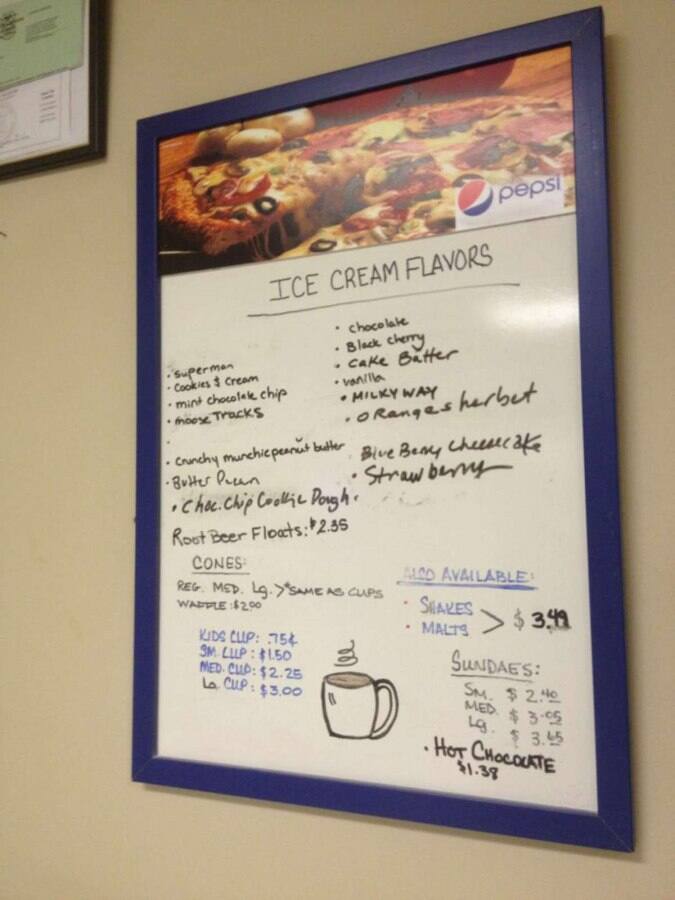 pepsi
ICE CREAM FLAVORS
• superman
• Cookies & Cream
• mint chocolate chip
• moose TRACKS
• crunchy munchie peanut butter
• Butter Pecan
• Choc. Chip Cookie Dough.
• chocolate
• Black cherry
• Cake Batter
• vanilla
• MILKY WAY
• Orange sherbet
Blue Berry Cheesecake
• Strawberry
Root Beer Floats: $2.35
CONES:
REG. MED. Lg. > *SAME AS CUPS
WAFFLE: $2.00
KIDS CUP: .75¢
SM. CUP: $1.50
MED. CUP: $2.25
Lg. CUP: $3.00
ALSO AVAILABLE:
• SHAKES
• MALTS > $3.49
SUNDAES:
SM. $2.40
MED. $3.05
Lg. $3.65
• HOT CHOCOLATE
$1.38